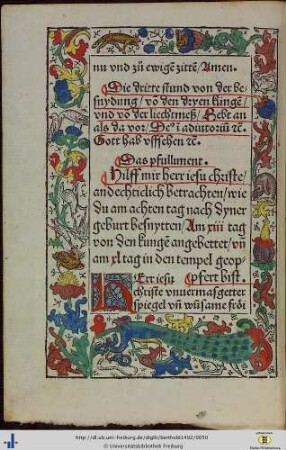 nu vnd zů ewigē zittē/Amen.
Die dritte stund von der be-
snydung/vō den dryen künge
vnd vō der liechtmeß/Hebt an
als da vor. De⁹ ī adiutoriū ⁊c.
Gott hab vffsehen ⁊c.
Das pfullment.
Hilff mir herr iesu christe/
andechticlich betrachten/wie
du am achten tag nach dyner
geburt besnytten/Am xiii tag
von den kungē angebettet/vn̄
am xl tag in den tempel geop-
HErr iesu pfert bist.
christe vnuermasgetter
spiegel vn̄ wūsame fröi
http://dl.ub.uni-freiburg.de/diglit/berthold1492/0010
© Universitätsbibliothek Freiburg